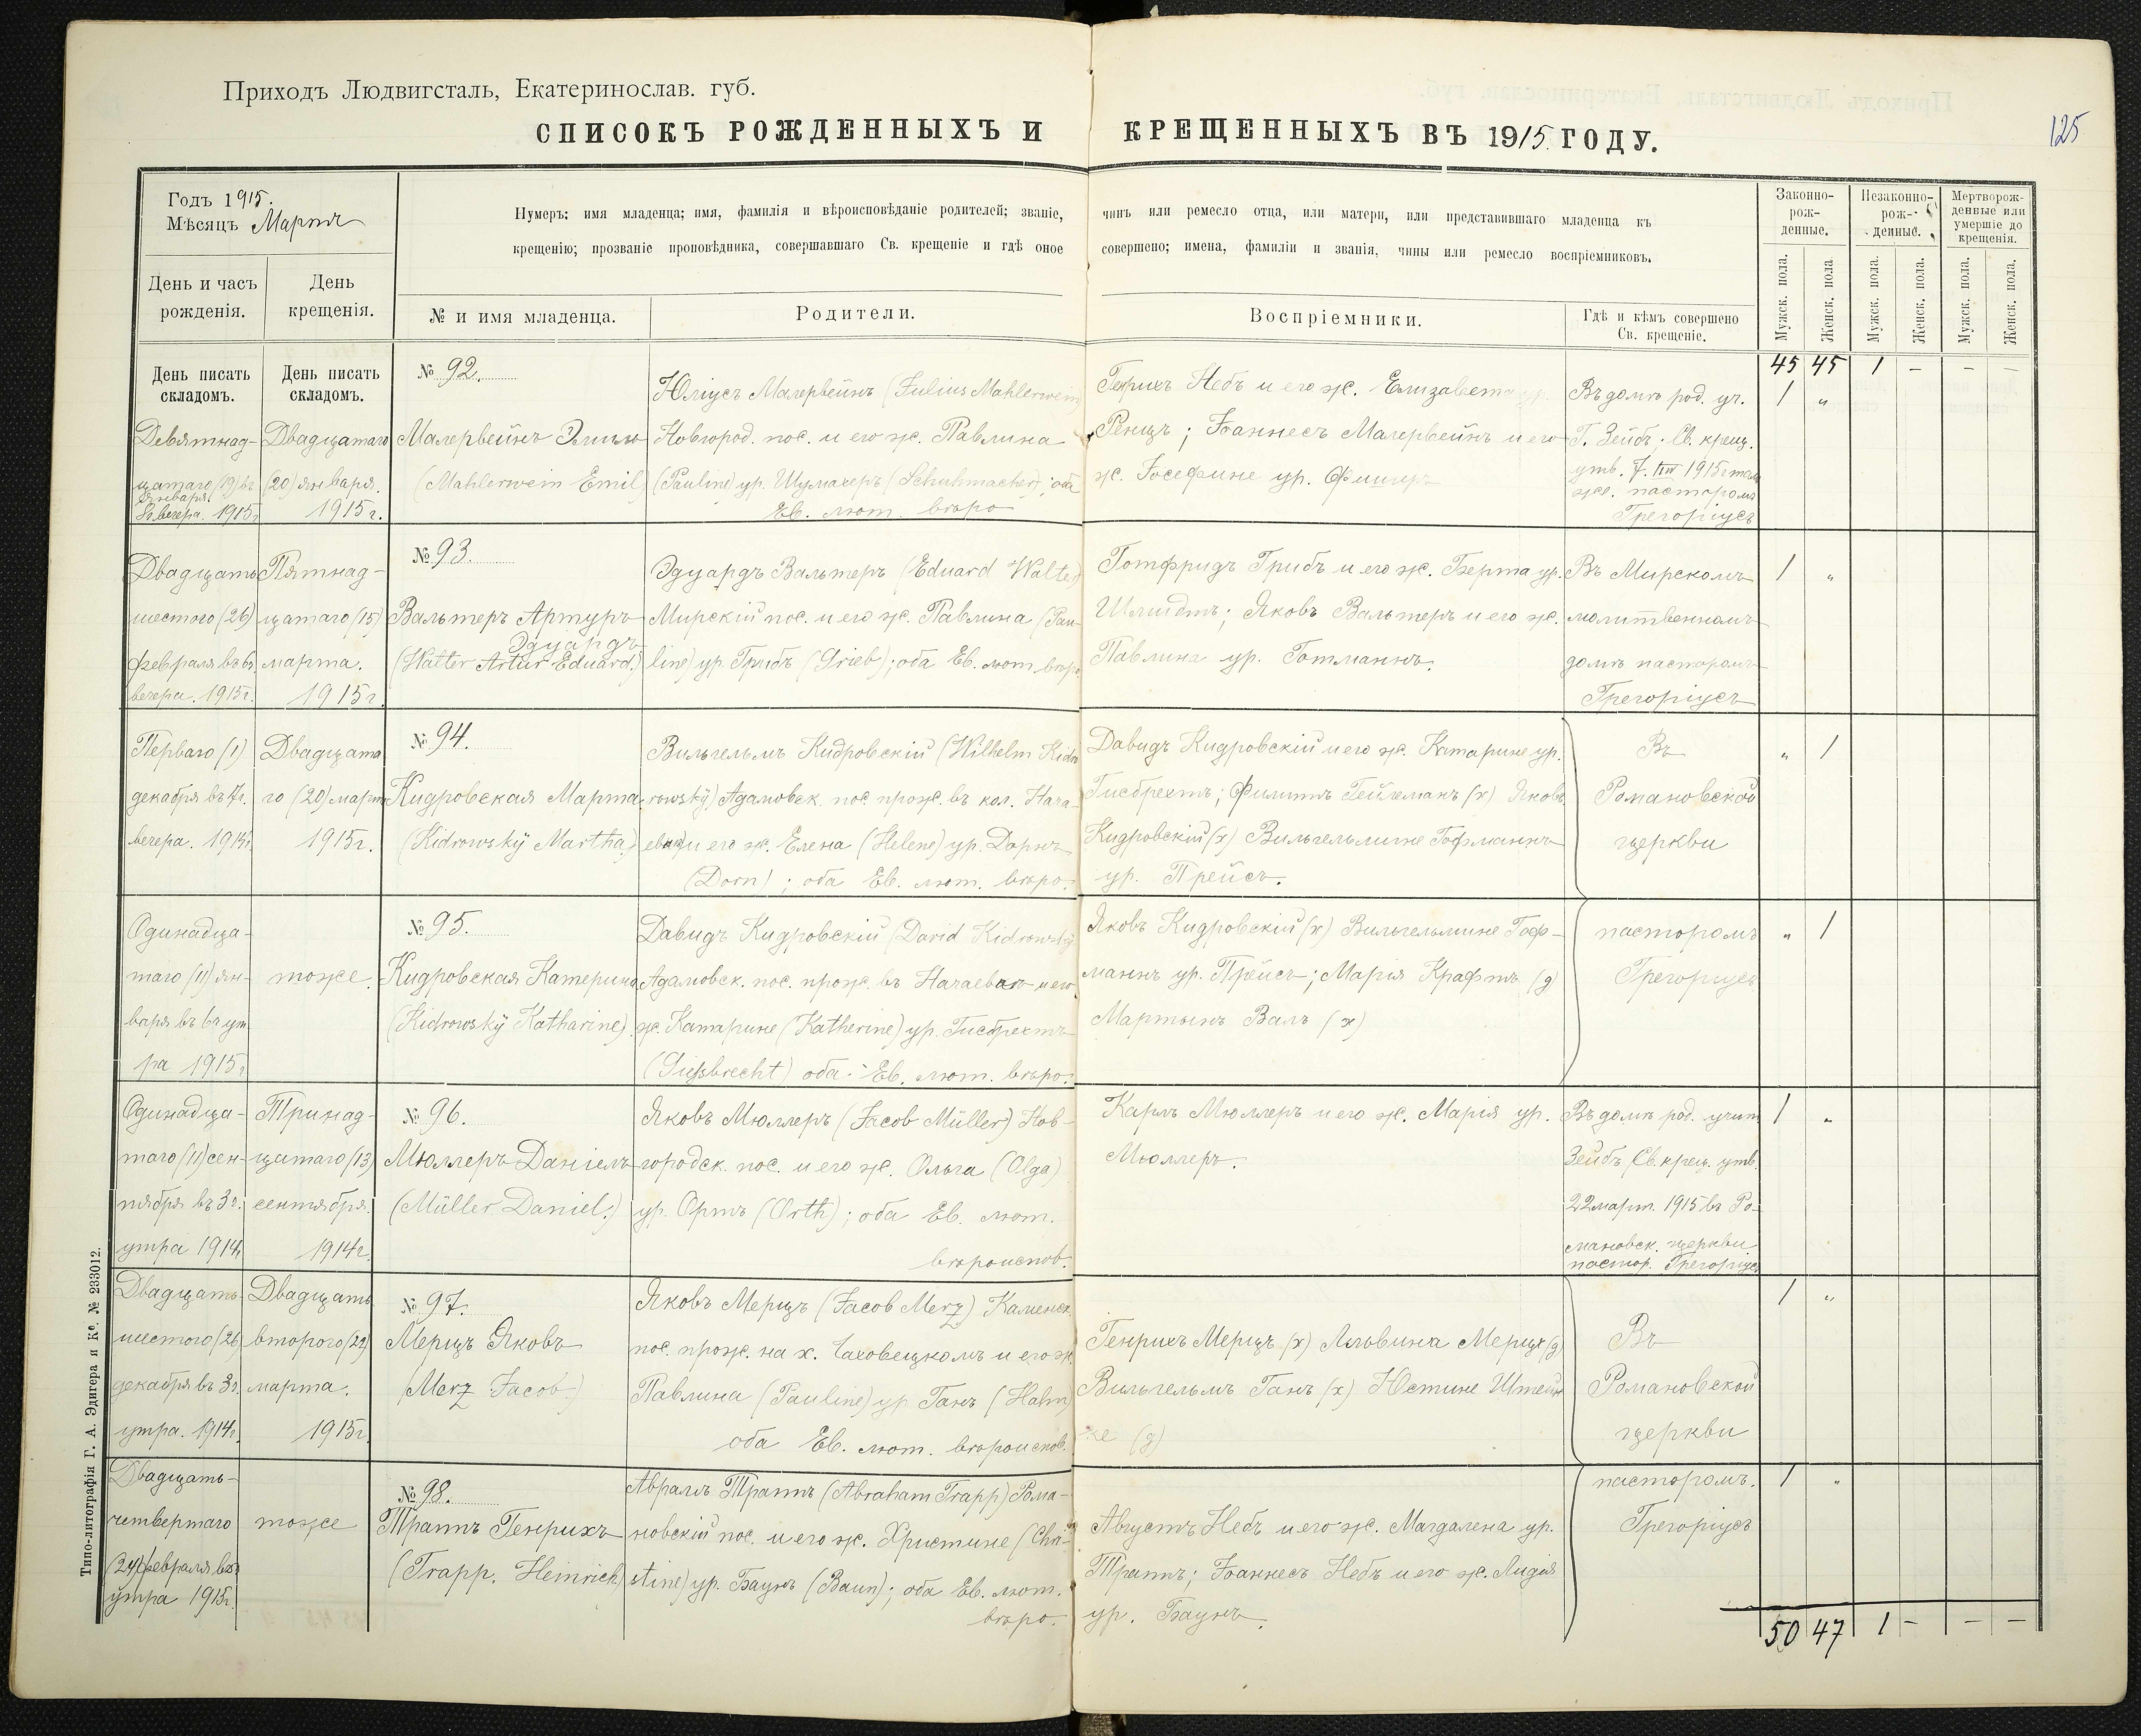 Приходъ Людвигсталь, Екатеринослав. губ.
125
СПИСОКЪ РОЖДЕННЫХЪ И КРЕЩЕННЫХЪ ВЪ 1915 ГОДУ.
Годъ 1915.
Мѣсяцъ Мартъ
День и часъ рожденія.
День крещенія.
Нумеръ: имя младенца; имя, фамилія и вѣроисповѣданіе родителей; званіе, чинъ или ремесло отца, или матери, или представившаго младенца къ
крещенію; прозваніе проповѣдника, совершавшаго Св. крещеніе и гдѣ оное совершено; имена, фамиліи и званія, чины или ремесло воспріемниковъ.
№ и имя младенца.
Родители.
Воспріемники.
Гдѣ и кѣмъ совершено
Св. крещеніе.
Законно-
рож-
денные.
Незаконно-
рож-
денные.
Мертворож-
денные или
умершіе до
крещенія.
Мужск. пола.
Женск. пола.
Мужск. пола.
Женск. пола.
Мужск. пола.
Женск. пола.
День писать
складомъ.
День писать
складомъ.
45 45 1 – – –
Девятнад-
цатаго (19) въ
января
8ч. вечера. 1915г
Двадцатаго
(20) января.
1915г.
№ 92.
Малервейнъ Эмиль
(Mahlerwein Emil)
Юліусъ Малервейнъ (Julius Mahlerwein)
Новгород. пос. и его ж. Павлина
(Pauline) ур. Шумахеръ (Schuhmacher); оба
Ев. лют. вѣро
Генрихъ Небъ и его ж. Елизавета ур.
Ренцъ; Іоаннесъ Малервейнъ и его
ж. Іосефине ур. Фишеръ
Въ домѣ род. уч.
Г. Зейбъ; Св. крещ.
утв. 7. III 1915г там
же. пасторомъ
Грегоріусъ
1 „
Двадцать
шестого (26)
февраля въ 6ч.
вечера. 1915г.
Пятнад-
цатаго (15)
марта.
1915г.
№ 93.
Вальтеръ Артуръ
Эдуардъ
(Walter Artur Eduard.)
Эдуардъ Вальтеръ (Eduard Walter)
Мирскій пос. и его ж. Павлина (Pau-
line) ур. Грибъ (Grieb); оба Ев. лют. вѣро
Готфридъ Грибъ и его ж. Берта ур.
Шмидтъ; Яковъ Вальтеръ и его ж.
Павлина ур. Готманнъ.
Въ Мирскомъ
молитвенномъ
домѣ пасторомъ
Грегоріусъ
1 „
Перваго (1)
декабря въ 7ч.
вечера. 1914г.
Двадцата
го (20) март
1915г.
№ 94.
Кидровская Марта
(Kidrowskÿ Martha)
Вильгельмъ Кидровскій (Wilhelm Kid-
rowskÿ) Адамовск. пос. прож. въ кол. Нача-
евкѣ и его ж. Елена (Helene) ур. Дорнъ
(Dorn); оба Ев. лют. вѣро.
Давидъ Кидровскій и его ж. Катарине ур.
Гисбрехтъ; Филиппъ Гейлеманъ (х) Яковъ
Кидровскій (х) Вильгельмине Гофманнъ
ур. Прейсъ.
Въ
Романовской
церкви
„ 1
Одинадца-
таго (11) ян-
варя въ 6ч ут
ра 1915г
тоже.
№ 95.
Кидровская Катерина
(Kidrowskÿ Katharine)
Давидъ Кидровскій (David Kidrowskÿ)
Адамовск. пос. прож. въ Начаевкѣ и его
ж. Катарине (Katherine) ур. Гисбрехтъ
(Giesbrecht) оба Ев. лют. вѣро.
Яковъ Кидровскій (х) Вильгельмине Гоф-
маннъ ур. Прейсъ; Марія Крафтъ (д)
Мартынъ Валъ (х)
пасторомъ
Грегоріусъ
„ 1
Одинадца-
таго (11) сен-
тября въ 3ч.
утра 1914г
Тринад-
цатаго (13)
сентября.
1914г.
№ 96.
Мюллеръ Даніелъ
(Müller Daniel.)
Яковъ Мюллеръ (Jacob Müller) Нов-
городск. пос. и его ж. Ольга (Olga)
ур. Ортъ (Orth); оба Ев. лют.
вѣроиспов.
Карлъ Мюллеръ и его ж. Марія ур.
Мюллеръ.
Въ домѣ род. учит
Зейбъ Св. крещ. утв.
22 март. 1915 въ Ро-
мановск. церкви
пастор. Грегоріусъ
1 „
Двадцать
шестого (26)
декабря въ 3ч.
утра. 1914г.
Двадцать
второго (22)
марта.
1915г.
№ 97.
Мерцъ Яковъ
(Merz Jacob.)
Яковъ Мерцъ (Jacob Merz) Каменск
пос. прож. на х. и его ж.
Павлина (Pauline) ур. Ганъ (Hahn)
оба Ев. лют. вѣроиспов.
Генрихъ Мерцъ (х) Мерцъ (д)
Вильгельмъ Ганъ (х) Юстине Штейн
ке (д)
Въ
Романовской
церкви
1 „
Двадцать-
четвертаго
(24) февраля въ
утра 1915г.
тоже
№ 98.
Траппъ Генрихъ
(Trapp. Heinrich)
Абрамъ Траппъ (Abraham Trapp) Рома-
новскій пос. и его ж. Христине (Chri-
stine) ур. Баунъ (Baun); оба Ев. лют.
вѣро.
Августъ Небъ и его ж. Магдалена ур.
Траппъ; Іоаннесъ Небъ и его ж. Лидія
ур. Баунъ.
пасторомъ.
Грегоріусъ
1 „
50 47 1 – – –
Типо-литографія Г. А. Эдигера и Кº. № 233012.